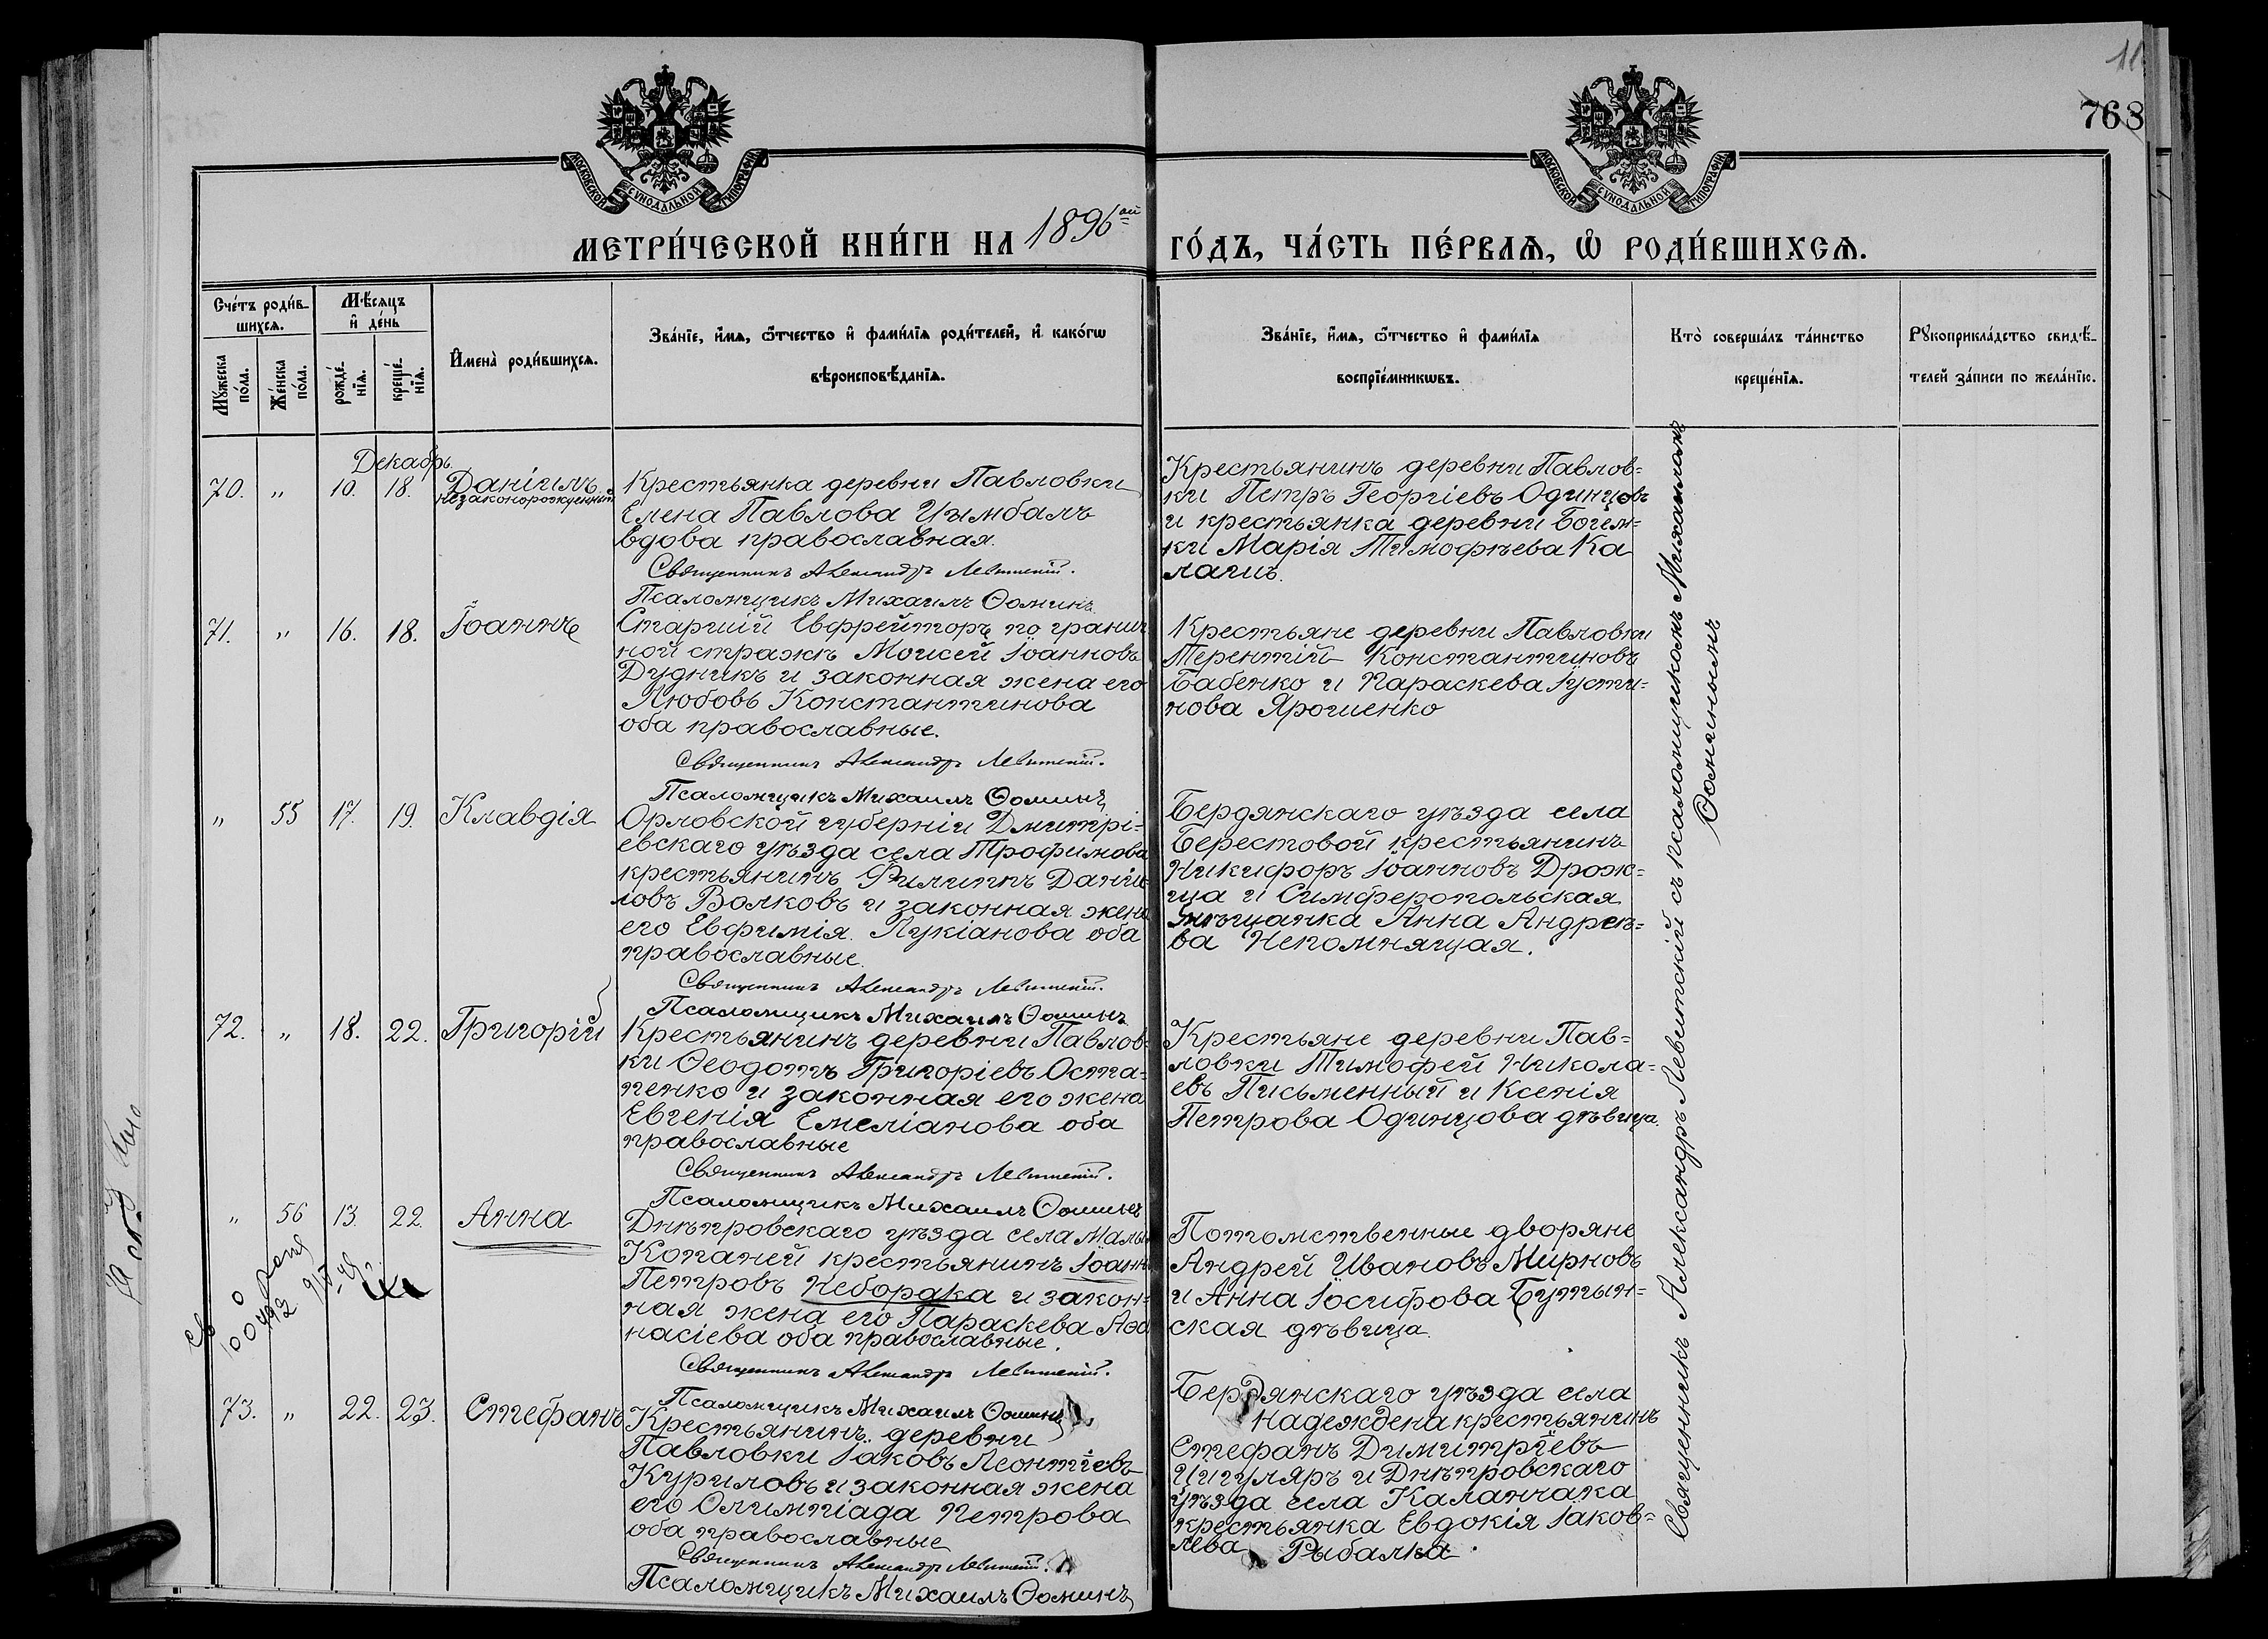 11
768
МОСКОВСКОЙ СУНОДАЛЬНОЙ ТИПОГРАФІИ
МОСКОВСКОЙ СУНОДАЛЬНОЙ ТИПОГРАФІИ
МЕТРИ́ЧЕСКОЙ КНИ́ГИ НА 1896ой ГО́ДЪ, ЧА́СТЬ ПЕ́РВАѦ, Ѡ РОДИ́ВШИХСѦ.
Сче́тъ роди́в-
шихсѧ.
Мѣ́сяцъ
и҆ де́нь
Мꙋ́жеска по́ла.
Же́нска по́ла.
рожде́-
нїѧ.
креще́-
нїѧ.
И҆мена̀ роди́вшихсѧ.
Зва́нїе, и҆́мѧ, ѻ҆́тчество и҆ фами́лїѧ роди́телей, и҆ како́гѡ
вѣроисповѣ́данїѧ.
Зва́нїе, и҆́мѧ, ѻ҆́тчество и҆ фами́лїѧ
воспрїе́мникѡвъ.
Кто̀ соверша́лъ та́инство
креще́нїѧ.
Рꙋкоприкла́дство свидѣ́-
телей за́писи по жела́нїю.
Декабрь
70. „ 10. 18. Даніилъ
незаконорожденный
Крестьянка деревни Павловки
Елена Павлова Цымбалъ
вдова православная.
Священникъ Александръ Левитскій.
Псаломщикъ Михаилъ Ѳоминъ
Крестьянинъ деревни Павлов=
ки Петръ Георгіевъ Одинцовъ
и крестьянка деревни Богем=
ки Марія Тимофѣева Ка
лагиъ.
71. „ 16. 18. Іоаннъ
Старшій Евфрейторъ по гранич
ной стражѣ Моисей Іоанновъ
Дудникъ и законная жена его
Любовь Константинова
оба православные.
Священникъ Александръ Левитскій.
Псаломщикъ Михаилъ Ѳоминъ
Крестьяне деревни Павловки
Терентій Константиновъ
Бабенко и Параскева Іусти=
нова Ярошенко
„ 55 17. 19. Клавдія
Орловской губерніи Дмитрі=
евскаго уѣзда села Трофимова
крестьянинъ Филиппъ Даніи
ловъ Волковъ и законная жена
его Евфимія Лукіанова оба
православные.
Священникъ Александръ Левитскій.
Псаломщикъ Михаилъ Ѳоминъ
Бердянскаго уѣзда села
Берестовой крестьянинъ
Никифоръ Іоанновъ Дрож=
ща и Симферопольская
мѣщанка Анна Андрее=
ва Непомнящая.
72. „ 18. 22. Григорій
Крестьянинъ деревни Павлов=
ки Ѳеодотъ Григоріевъ Оста=
пенко и законная его жена
Евгенія Емеліанова оба
православные
Священникъ Александръ Левитскій.
Псаломщикъ Михаилъ Ѳоминъ
Крестьяне деревни Пав=
ловки Тимофей Никола=
евъ Письменный и Ксенія
Петрова Одинцова дѣвица.
„ 56 13. 22. Анна
Днѣпровскаго уѣзда села Малы
Копаней крестьянинъ Іоаннъ
Петровъ Неборака и закон=
ная жена его Параскева Аѳа
насіева оба православные.
Священникъ Александръ Левитскій.
Псаломщикъ Михаилъ Ѳоминъ
Потомственные дворяне
Андрей Ивановъ Мирновъ
и Анна Іосифова Бутын=
ская дѣвица.
73. „ 22. 23. Стефанъ
Крестьянинъ деревни
Павловки Іаковъ Леонтіевъ
Куриловъ и законная жена
его Олимпіада Петрова
оба православные
Священникъ Александръ Левитскій.
Псаломщикъ Михаилъ Ѳоминъ
Бердянскаго уѣзда села
Надеждена крестьянинъ
Стефанъ Димитріевъ
Цигуляръ и Днѣпровскаго
уѣзда села Каланчака
крестьянка Евдокія Іаков=
лева Рыбалка.
Священникъ Александръ Левитскій съ псаломщикомъ Михаиломъ
Ѳоминымъ